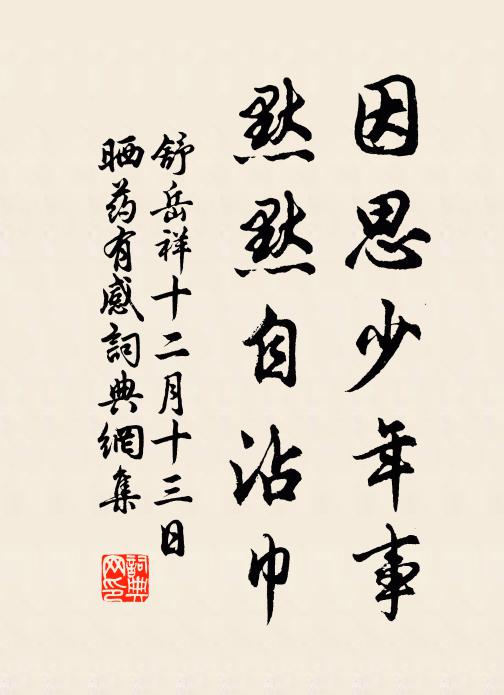 因思少年事
默默自沾巾
舒岳祥十二月十三日
晒药有感詞典網集
詞典网印